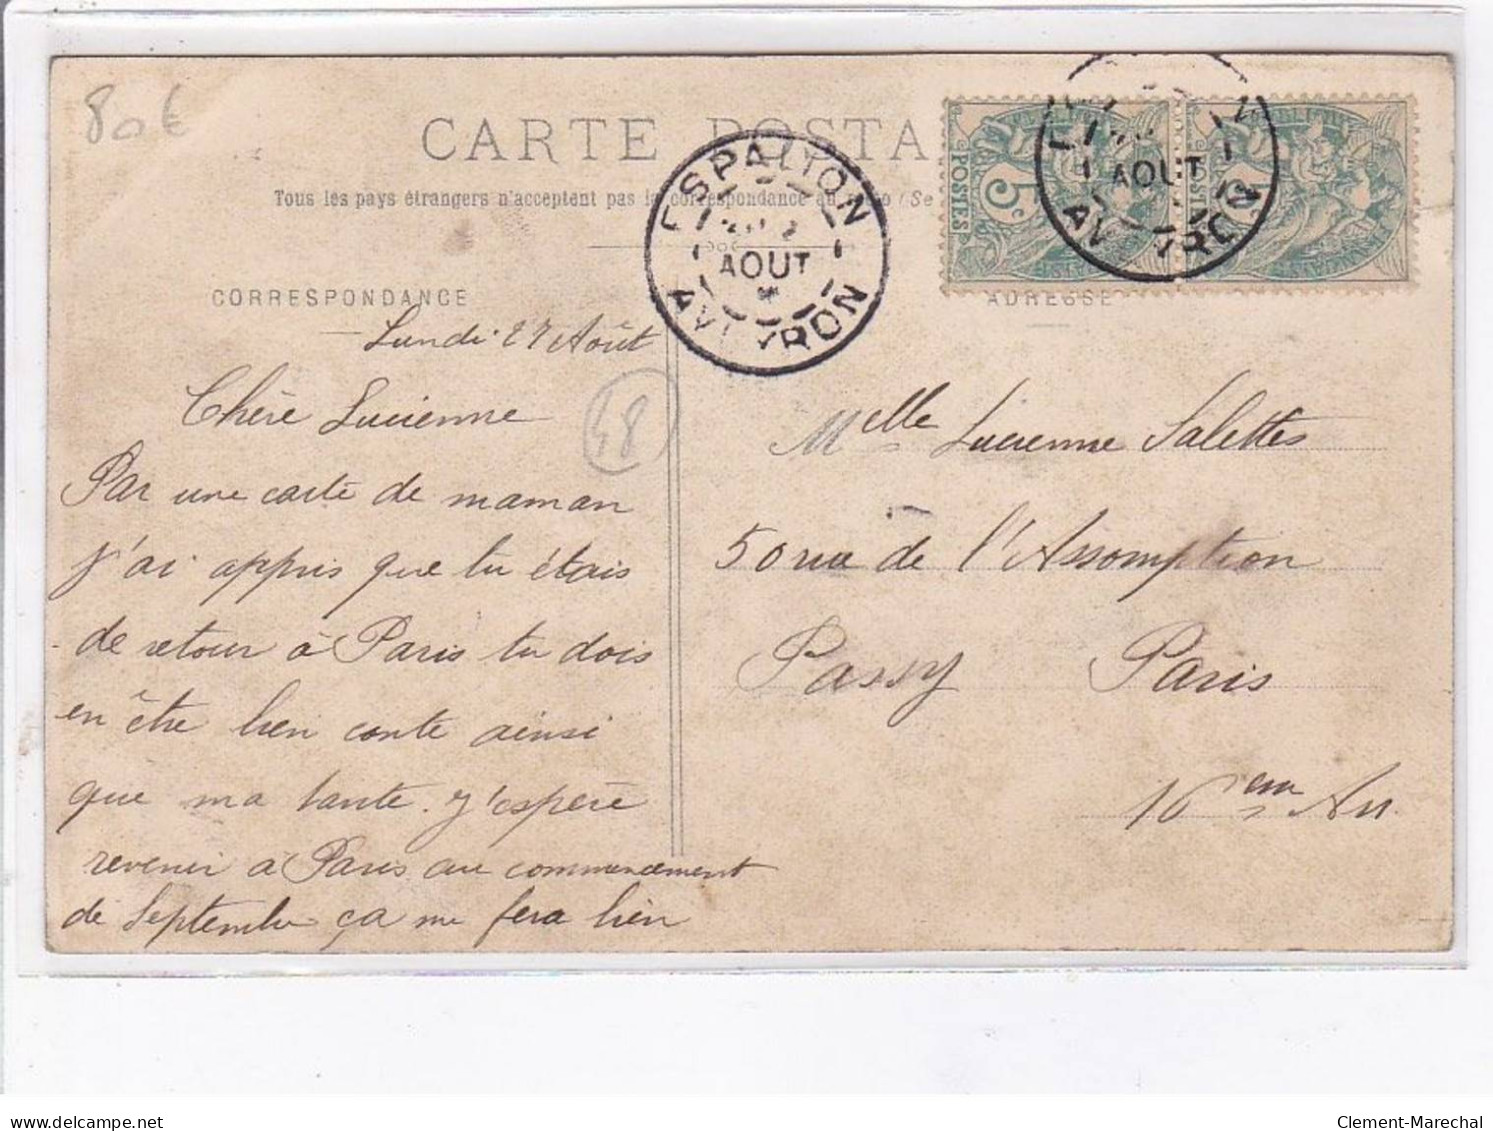 80€
CARTE POSTA
Tous les pays étrangers n'acceptent pas la correspondance au recto (Se
ESPALION
AOUT
AVEYRON
POSTES 5c
AOUT
AVEYRON
CORRESPONDANCE
ADRESSE
Lundi 27 Août
48
Chère Lucienne
Par une carte de maman
j'ai appris que tu étais
de retour à Paris tu dois
en être bien conte ainsi
que ma tante. J'espère
revenir à Paris au commencement
de Septembre ça me fera bien
Melle Lucienne Salettes
50 rue de l'Assomption
Passy Paris
16em Arr.
delcampe.net
Clement-Marechal